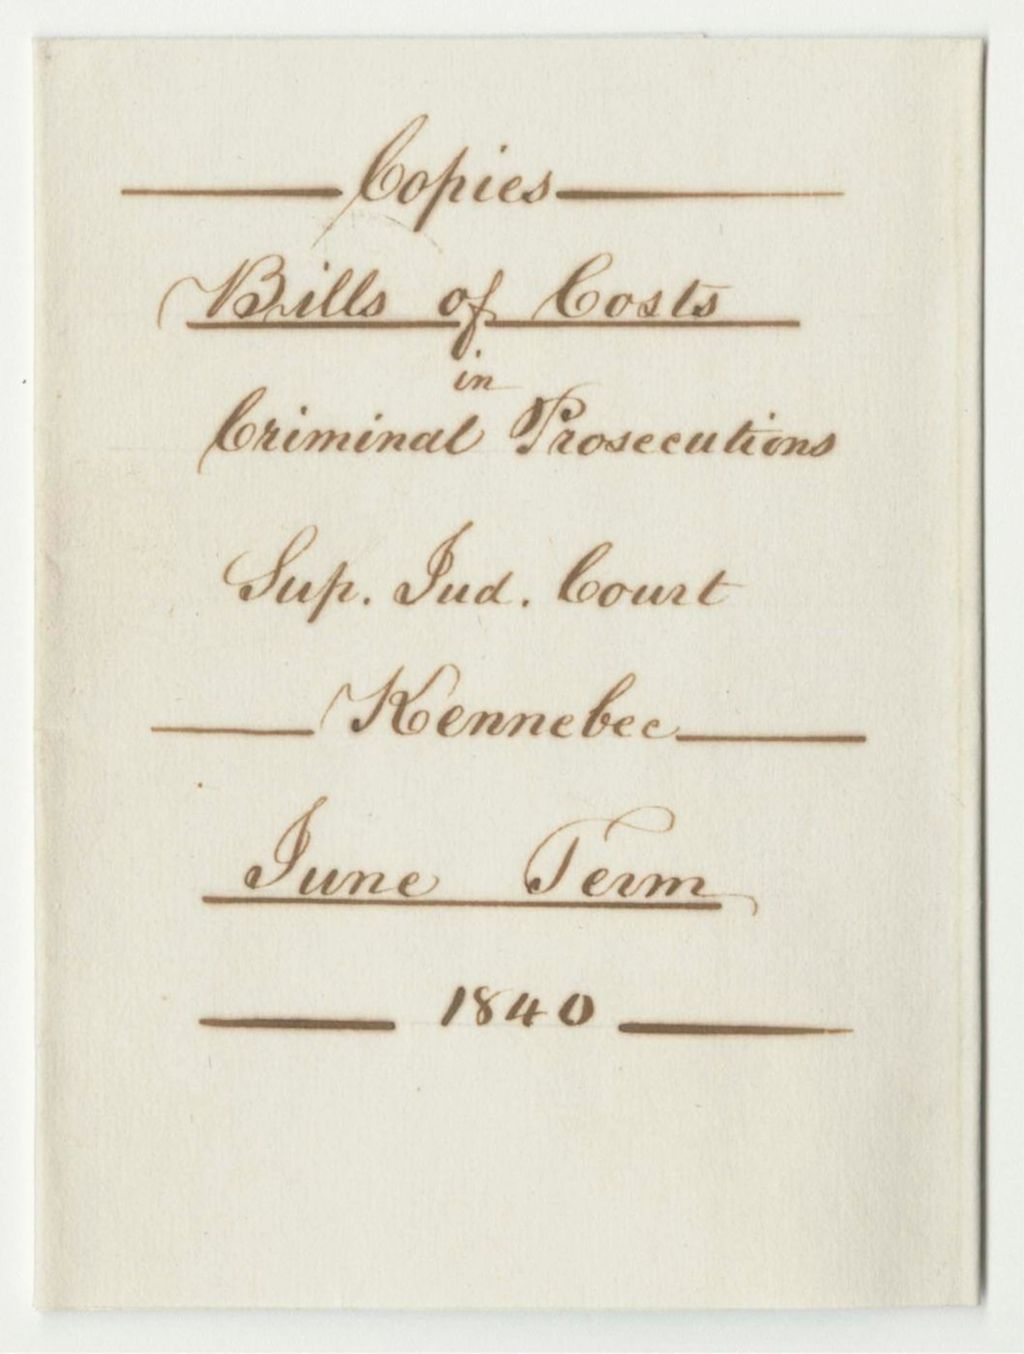 Copies
Bills of Costs
in
Criminal Prosecutions
Sup. Jud. Court
Kennebec
June Term
1840